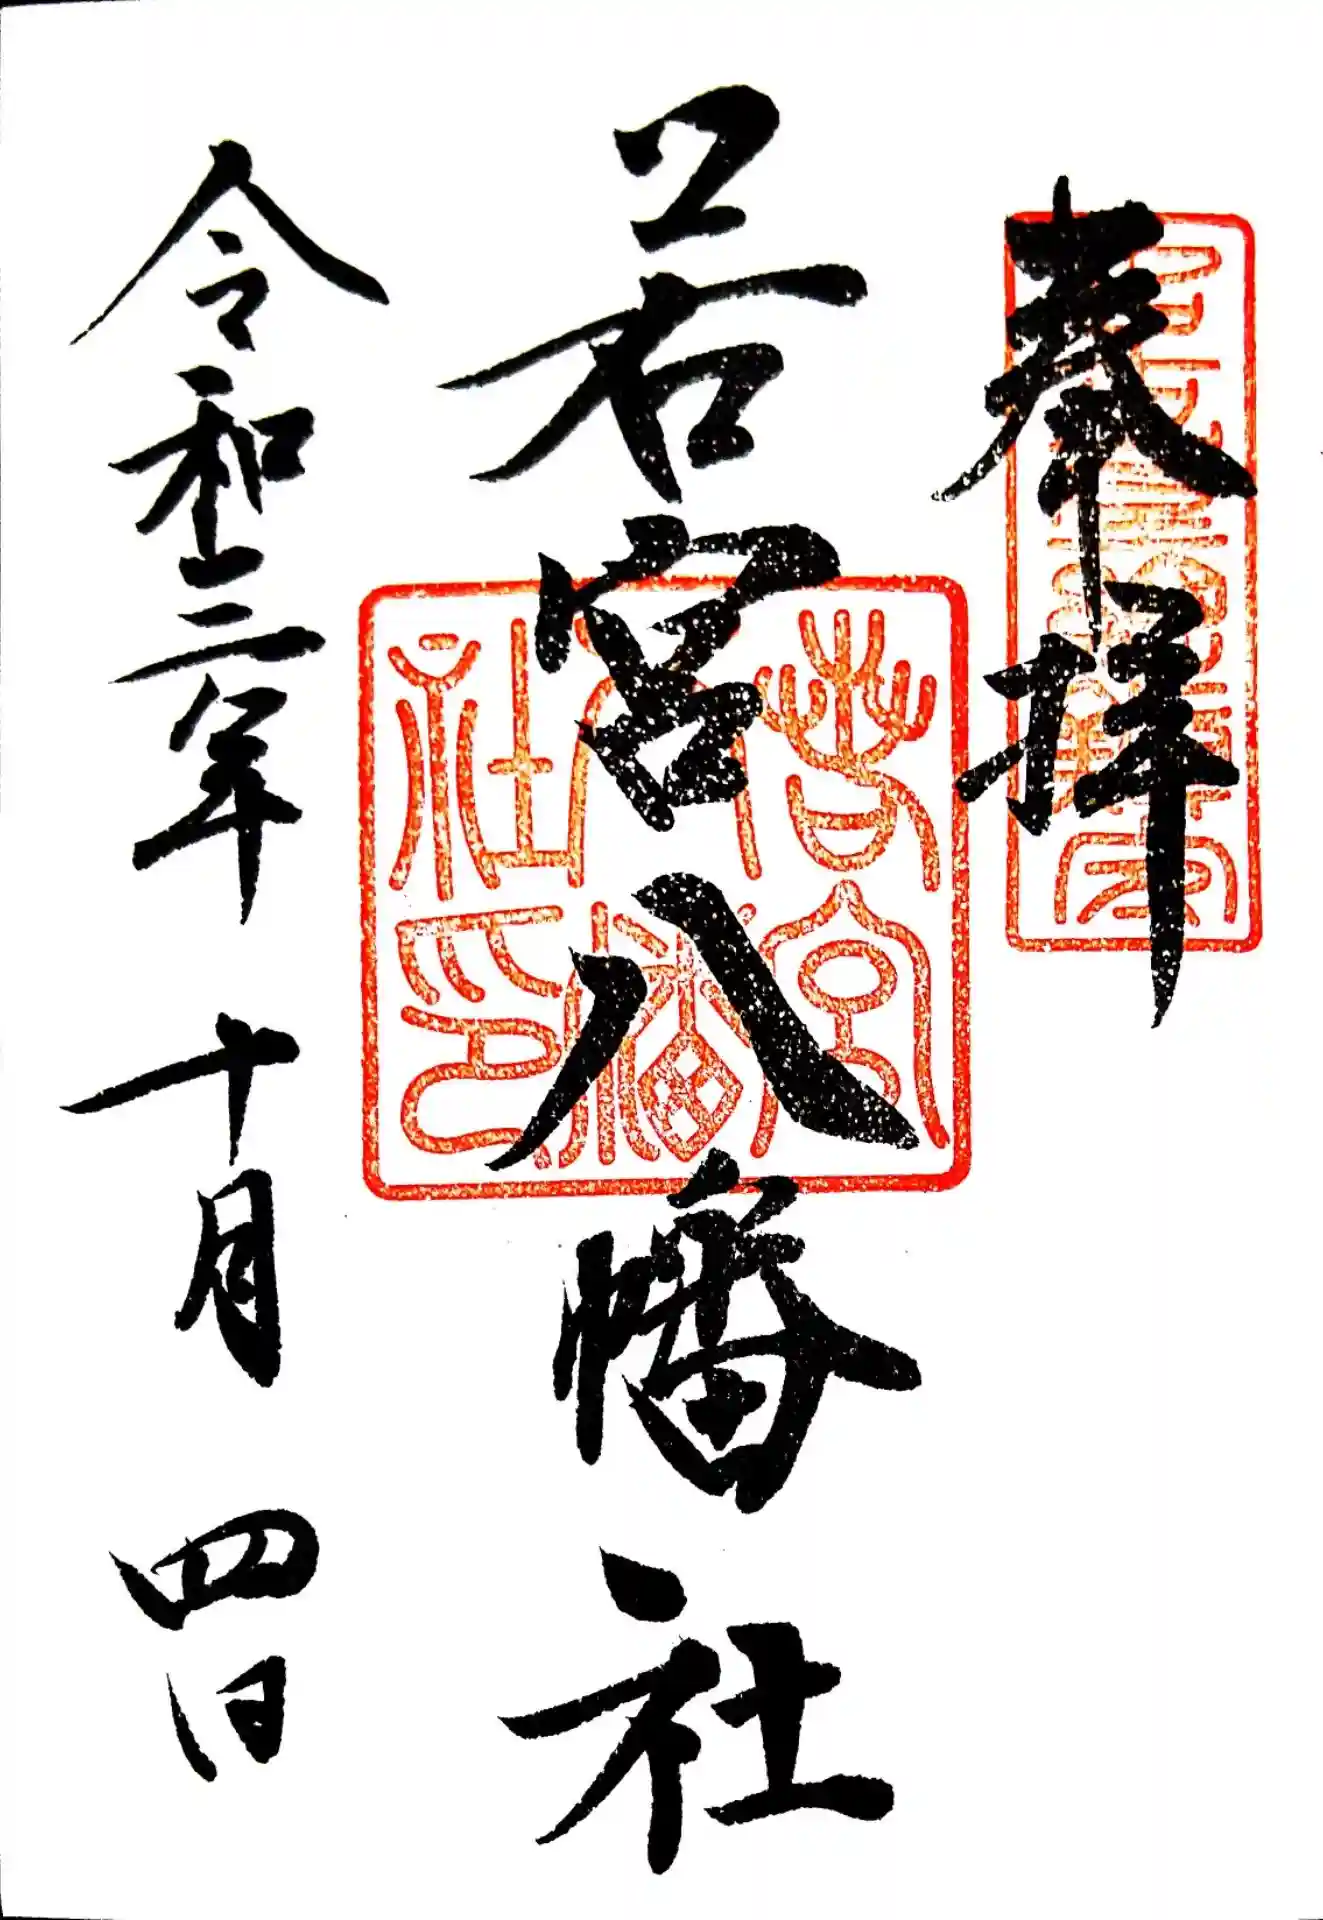 奉拝
若宮八幡社
令和三年十月四日
若宮
八幡
社印